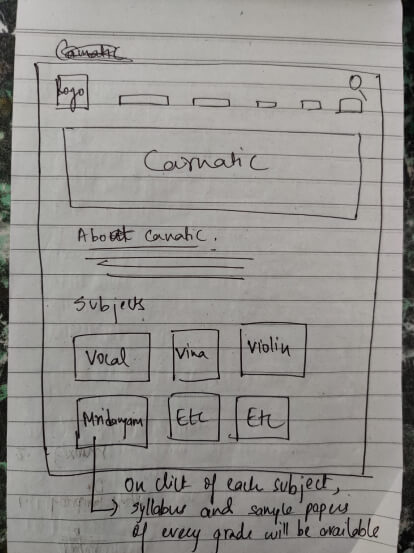 Carnatic
Logo
Carnatic
About canatic.
Subjects
Vocal Vina Violin
Mridangam Etc Etc
On click of each subject,
syllabus and sample papers
of every grade will be available